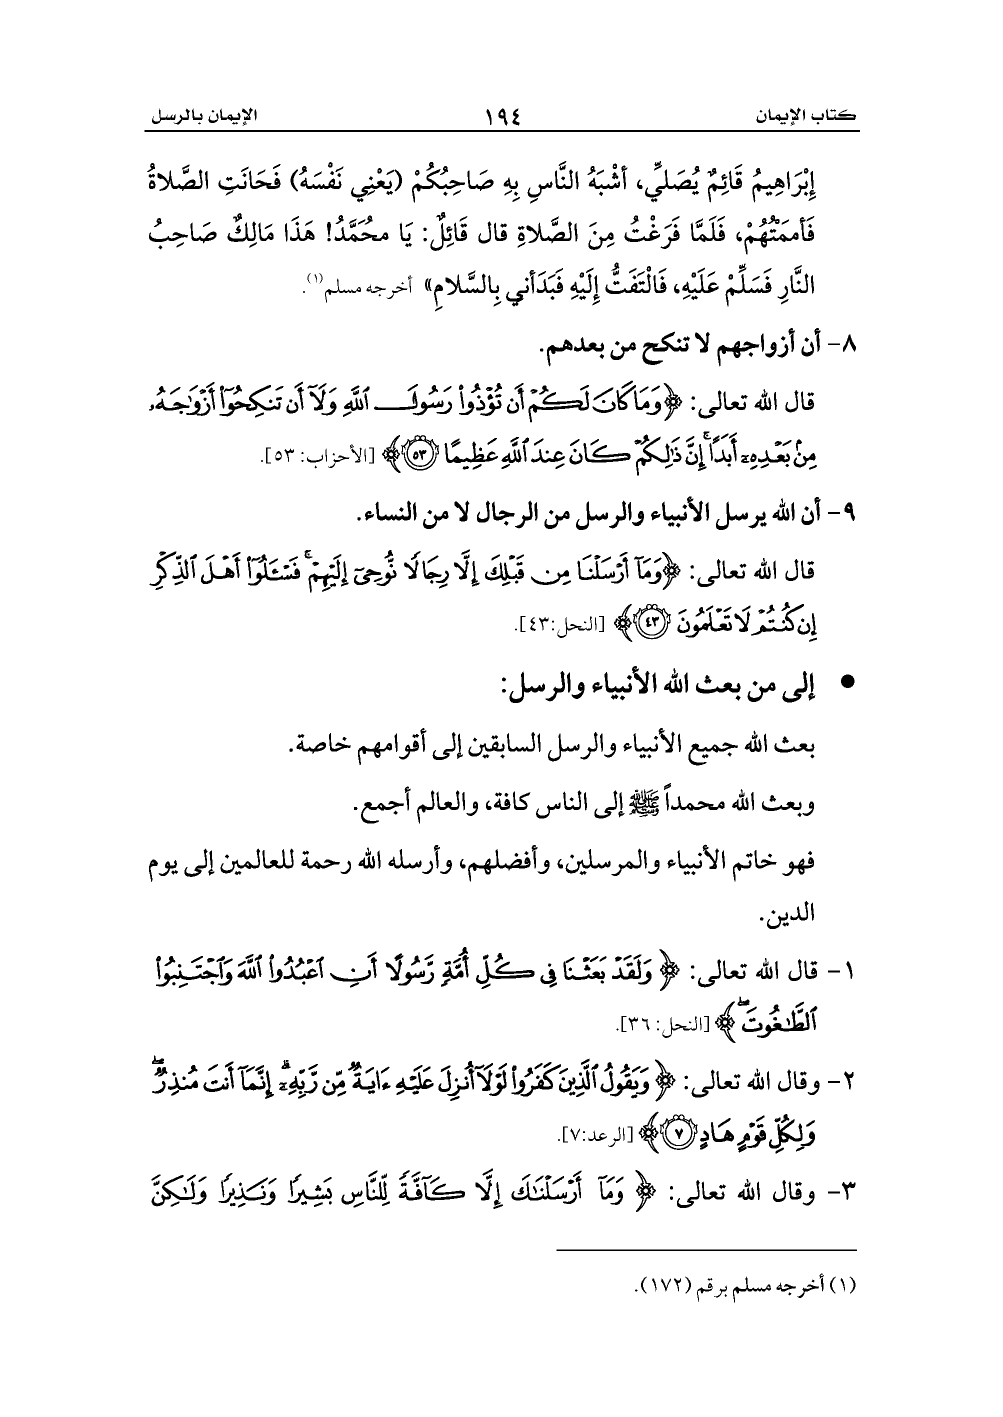 كتاب الإيمان ١٩٤ الإيمان بالرسل
إِبْرَاهِيمُ قَائِمٌ يُصَلِّي، أشْبَهُ النَّاسِ بِهِ صَاحِبُكُمْ (يَعْنِي نَفْسَهُ) فَحَانَتِ الصَّلاةُ
فَأمَمْتُهُمْ، فَلَمَّا فَرَغْتُ مِنَ الصَّلاةِ قال قَائِلٌ: يَا محُمَّدُ! هَذَا مَالِكٌ صَاحِبُ
النَّارِ فَسَلِّمْ عَلَيْهِ، فَالْتَفَتُّ إِلَيْهِ فَبَدَأني بِالسَّلامِ» أخرجه مسلم(١).
٨- أن أزواجهم لا تنكح من بعدهم.
قال الله تعالى: ﴿وَمَا كَانَ لَكُمْ أَن تُؤْذُوا۟ رَسُولَ ٱللَّهِ وَلَآ أَن تَنكِحُوٓا۟ أَزْوَٰجَهُۥ
مِنۢ بَعْدِهِۦٓ أَبَدًا ۚ إِنَّ ذَٰلِكُمْ كَانَ عِندَ ٱللَّهِ عَظِيمًا ٥٣﴾ [الأحزاب: ٥٣].
٩- أن الله يرسل الأنبياء والرسل من الرجال لا من النساء.
قال الله تعالى: ﴿وَمَآ أَرْسَلْنَا مِن قَبْلِكَ إِلَّا رِجَالًا نُّوحِىٓ إِلَيْهِمْ ۚ فَسْـَٔلُوٓا۟ أَهْلَ ٱلذِّكْرِ
إِن كُنتُمْ لَا تَعْلَمُونَ ٤٣﴾ [النحل:٤٣].
● إلى من بعث الله الأنبياء والرسل:
بعث الله جميع الأنبياء والرسل السابقين إلى أقوامهم خاصة.
وبعث الله محمداً ﷺ إلى الناس كافة، والعالم أجمع.
فهو خاتم الأنبياء والمرسلين، وأفضلهم، وأرسله الله رحمة للعالمين إلى يوم
الدين.
١- قال الله تعالى: ﴿ وَلَقَدْ بَعَثْنَا فِى كُلِّ أُمَّةٍ رَّسُولًا أَنِ ٱعْبُدُوا۟ ٱللَّهَ وَٱجْتَنِبُوا۟
ٱلطَّٰغُوتَ ۖ ﴾ [النحل: ٣٦].
٢- وقال الله تعالى: ﴿ وَيَقُولُ ٱلَّذِينَ كَفَرُوا۟ لَوْلَآ أُنزِلَ عَلَيْهِ ءَايَةٌ مِّن رَّبِّهِۦٓ ۗ إِنَّمَآ أَنتَ مُنذِرٌ ۖ
وَلِكُلِّ قَوْمٍ هَادٍ ٧ ﴾ [الرعد:٧].
٣- وقال الله تعالى: ﴿ وَمَآ أَرْسَلْنَٰكَ إِلَّا كَآفَّةً لِّلنَّاسِ بَشِيرًا وَنَذِيرًا وَلَٰكِنَّ
(١) أخرجه مسلم برقم (١٧٢).